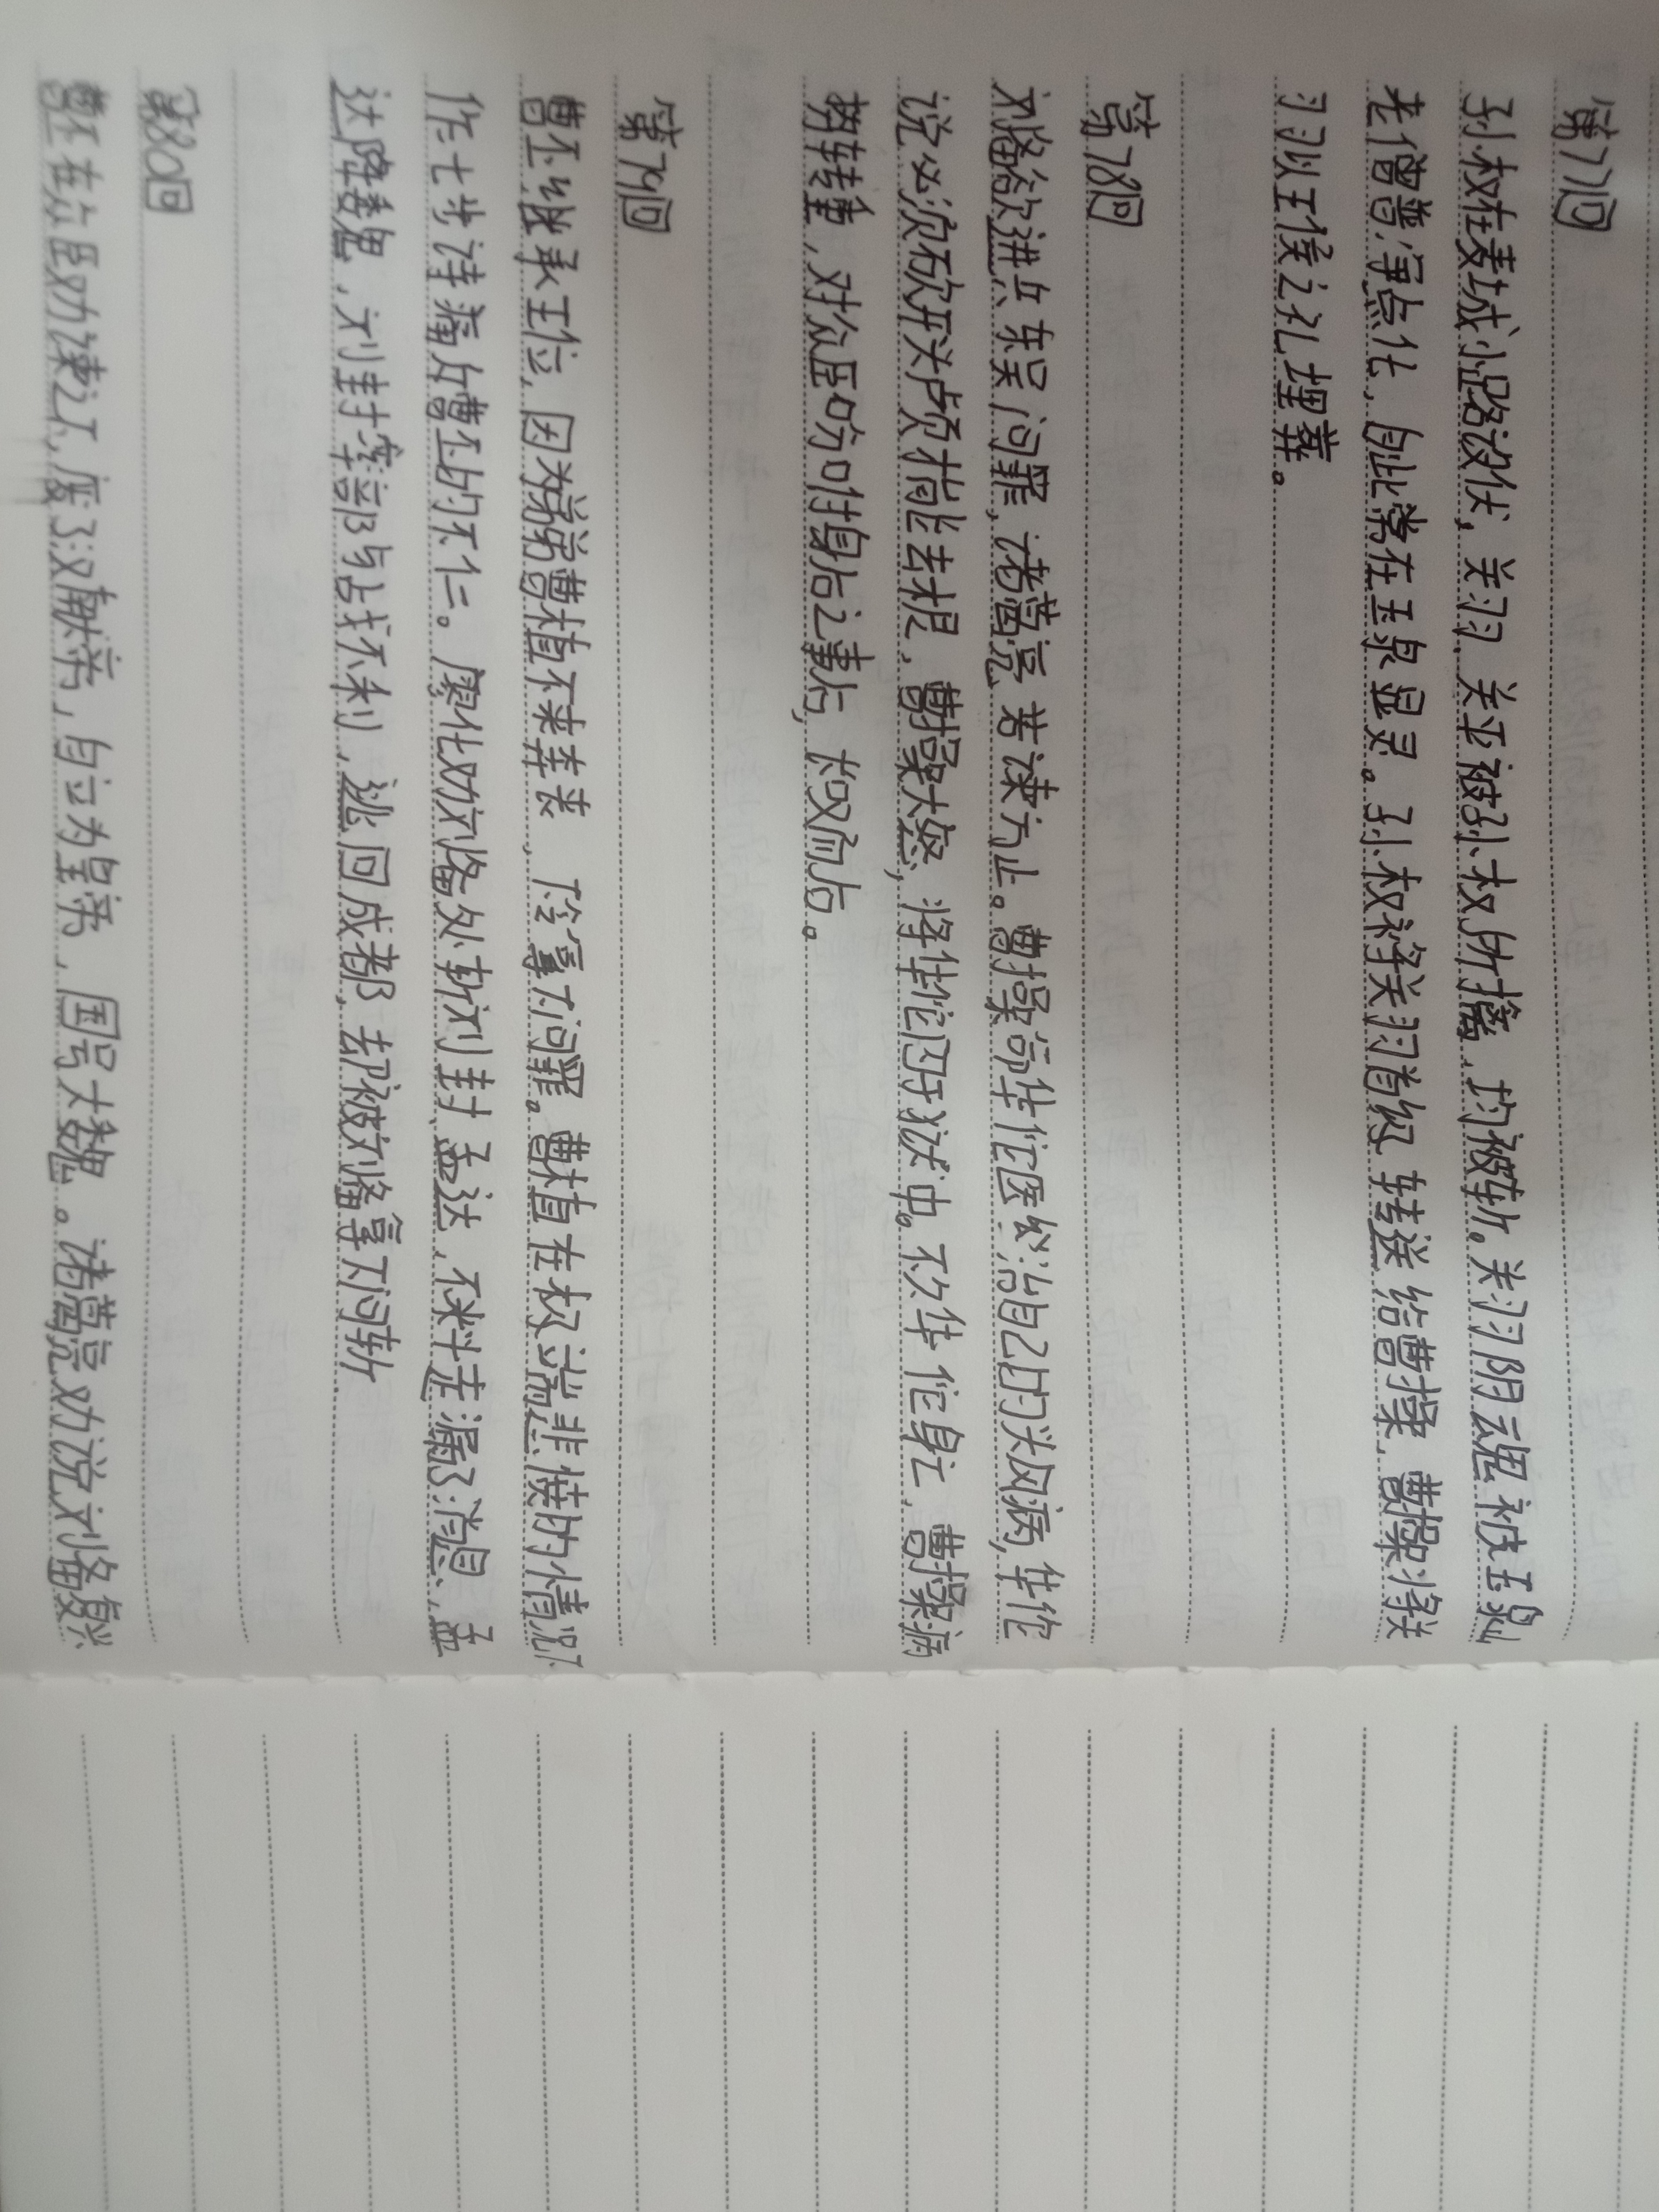 第77回
孙权在麦城小路设伏，关羽、关平被孙权所擒，均被斩。关羽阴魂被玉泉山
老僧普净点化，自此常在玉泉显灵。孙权将关羽首级转送给曹操，曹操将关
羽以王侯之礼埋葬。
第78回
刘备欲进兵东吴问罪，诸葛亮苦谏方止。曹操命华佗医治自己的头风病，华佗
说必须砍开头颅才能去根，曹操大怒，将华佗囚于狱中。不久华佗身亡，曹操病
势转重，对众臣吩咐身后之事后，叹气而后。
第79回
曹丕继承王位，因为弟弟曹植不来奔丧，下令问罪。曹植在极端悲愤的情况下
作七步诗痛斥曹丕的不仁。廖化劝刘备处斩刘封、孟达，不料走漏了消息，孟
达降曹魏，刘封率部与战不利，逃回成都，却被刘备问斩
第80回
曹丕在众臣劝谏之下，废了汉献帝，自立为皇帝，国号大魏。诸葛亮劝说刘备继